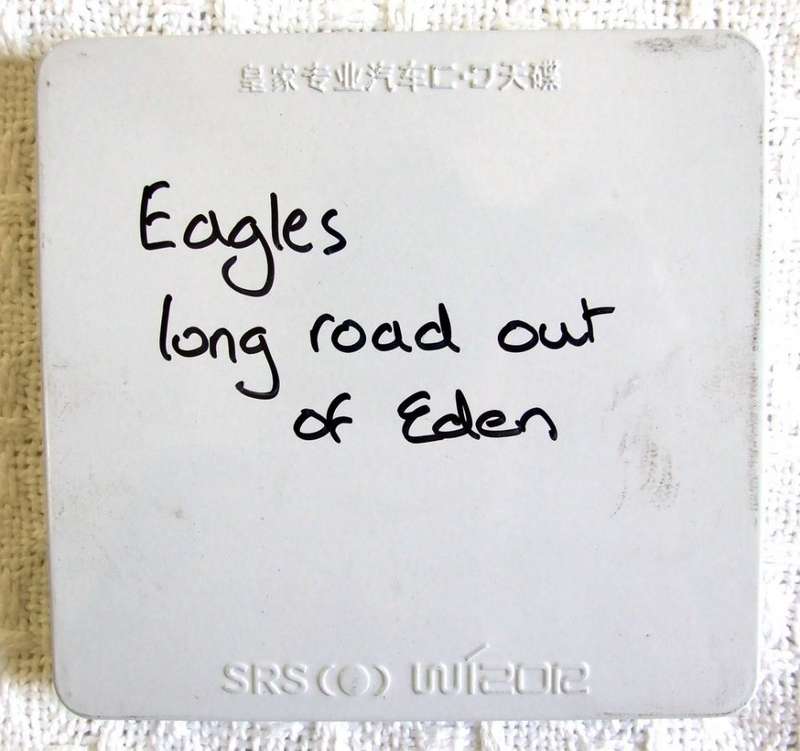 皇家专业汽车C·D天碟
Eagles
long road out
of Eden
SRS